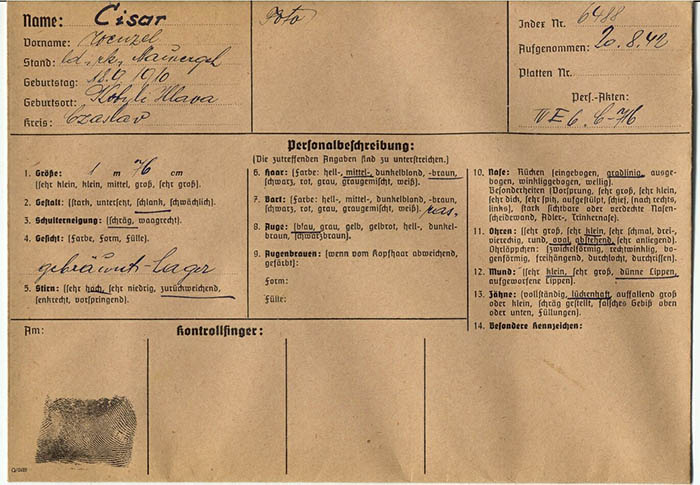 Name: Cisar
Vorname: Wenzel
Stand: ld., rk.,
Geburtstag: 18.9.1910
Geburtsort: Kobyli Hlava
Kreis: Czaslav
Foto
Index Nr. 6488
Aufgenommen: 20.8.42
Platten Nr.
Pers.-Akten:
IV E 6. C-76
Personalbeschreibung:
(Die zutreffenden Angaben sind zu unterstreichen.)
1. Größe: 1 m 76 cm
(sehr klein, klein, mittel, groß, sehr groß).
2. Gestalt: (stark, untersetzt, schlank, schwächlich).
3. Schulterneigung: (schräg, waagrecht).
4. Gesicht: (Farbe, Form, Fülle).
gebräunt-hager
5. Stirn: (sehr hoch, sehr niedrig, zurückweichend,
senkrecht, vorspringend).
6. Haar: (Farbe: hell-, mittel-, dunkelblond, -braun,
schwarz, rot, grau, graugemischt, weiß).
7. Bart: (Farbe: hell-, mittel-, dunkelblond, -braun,
schwarz, rot, grau, graugemischt, weiß). ras.
8. Auge: (blau, grau, gelb, gelbrot, hell-, dunkel-
braun, schwarzbraun).
9. Augenbrauen: (wenn vom Kopfhaar abweichend,
gefärbt):
Form:
Fülle:
10. Nase: Rücken (eingebogen, gradlinig, ausge-
bogen, winkliggebogen, wellig).
Besonderheiten (Vorsprung, sehr groß, sehr klein,
sehr dick, sehr spitz, aufgestülpt, schief, (nach rechts,
links), stark sichtbare oder verdeckte Nasen-
scheidewand, Adler-, Trinkernase).
11. Ohren: (sehr groß, sehr klein, sehr schmal, drei-,
viereckig, rund, oval, abstehend, sehr anliegend).
Ohrläppchen: (zwickelförmig, rechtwinklig, bo-
genförmig, freihängend, durchlocht, durchrissen).
12. Mund: (sehr klein, sehr groß, dünne Lippen,
aufgeworfene Lippen).
13. Zähne: (vollständig, lückenhaft, auffallend groß
oder klein, schräg gestellt, falsches Gebiß oben
oder unten, Füllungen).
14. Besondere Kennzeichen:
Am:
Kontrollfinger: